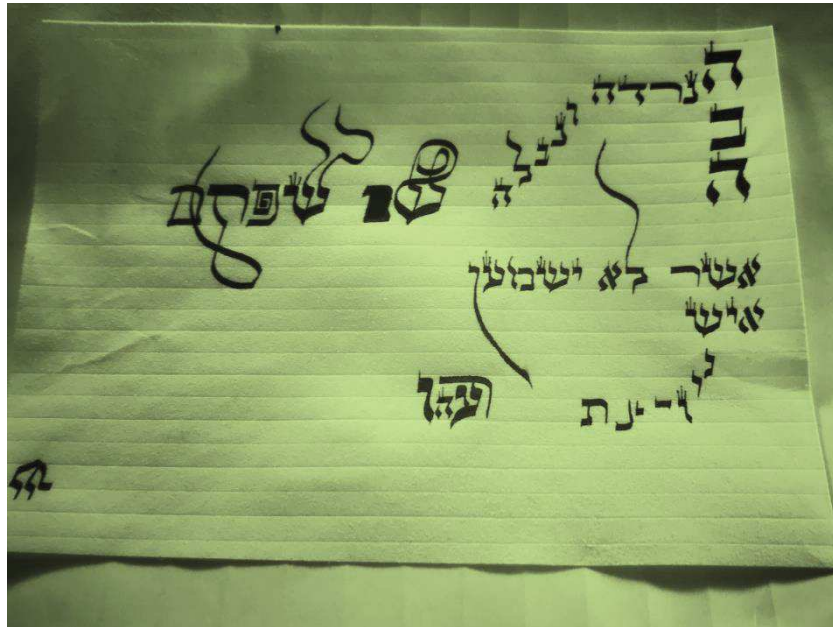 הבה
נרדה
ונבלה
שם שפתם
אשר לא ישמעו
איש
רעהו